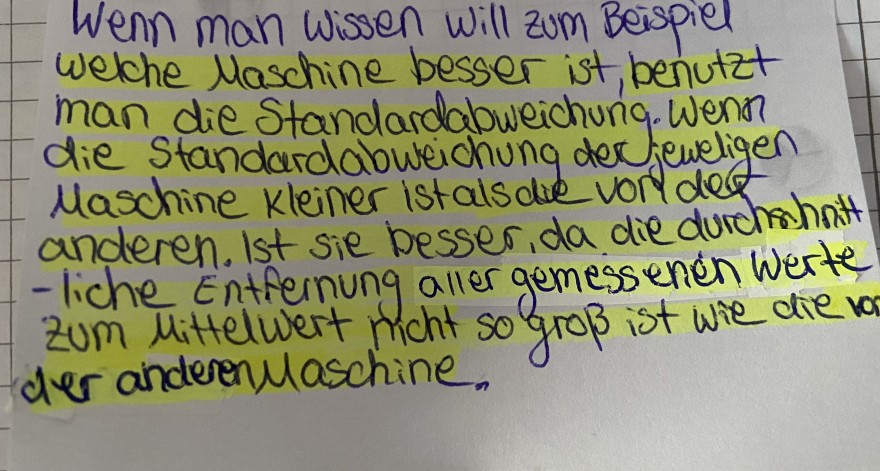 Wenn man wissen will zum Beispiel
welche Maschine besser ist, benutzt
man die Standardabweichung. Wenn
die Standardabweichung der jeweligen
Maschine kleiner ist als die von der
anderen. Ist sie besser, da die durchschnitt
-liche Entfernung aller gemessenen Werte
zum Mittelwert nicht so groß ist wie die von
der anderen Maschine.